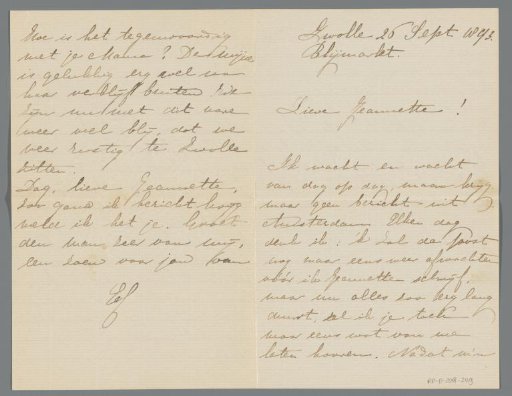 Hoe is het tegenwoordig
met je Mama? De mijne
is gelukkig erg wel na
haar verblijf buiten
weer veel blij, dat we
weer rustig te Zwolle
zitten.
Dag, lieve Jeannette,
zoo gauw ik bericht krijg
meld ik het je. Groet
den man zeer van mij,
een zoen voor jou van
Ef
Zwolle 26 Sept. 1893.
Blijmarkt.
Lieve Jeannette!
Ik wacht en wacht
van dag op dag, maar krijg
maar geen bericht uit
Amsterdam. Elken dag
denk ik: ik zal de post
nog maar eens weer afwachten
vóór ik Jeannette schrijf,
maar nu alles zoo erg lang
duurt, zal ik je toch
maar eens wat van me
laten hooren. Nadat